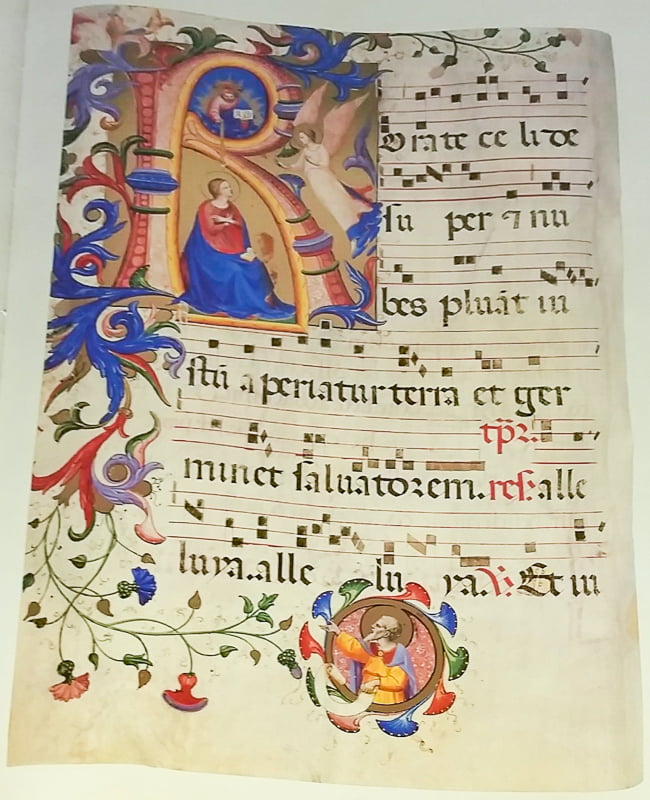 R Orate ce li de
su per ⁊ nu
bes pluāt iu
stū aperiatur terra et ger
minet saluatorem. res: alle
luya. alle lu ya. V: Et iu